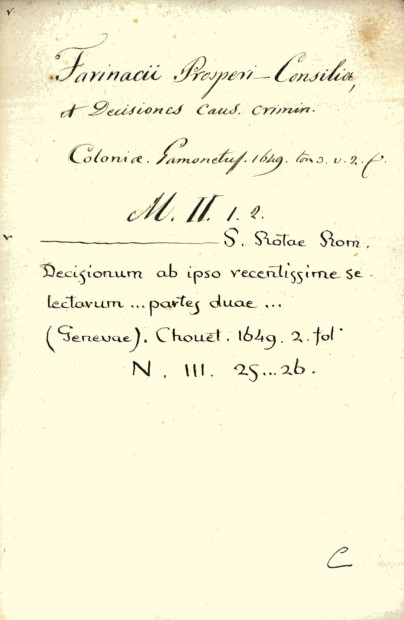 v.
Farinacii Prosperi – Consilia,
et Decisiones caus. crimin.
Coloniæ. 1649. tom 3. v. 2. f.
M. II. 1. 2.
v
——— S. Rotae Rom.
Decisionum ab ipso recentissime se-
lectarum ... partes duae ...
(Genevae). Chouët. 1649. 2. fol.
N. III. 25...26.
C